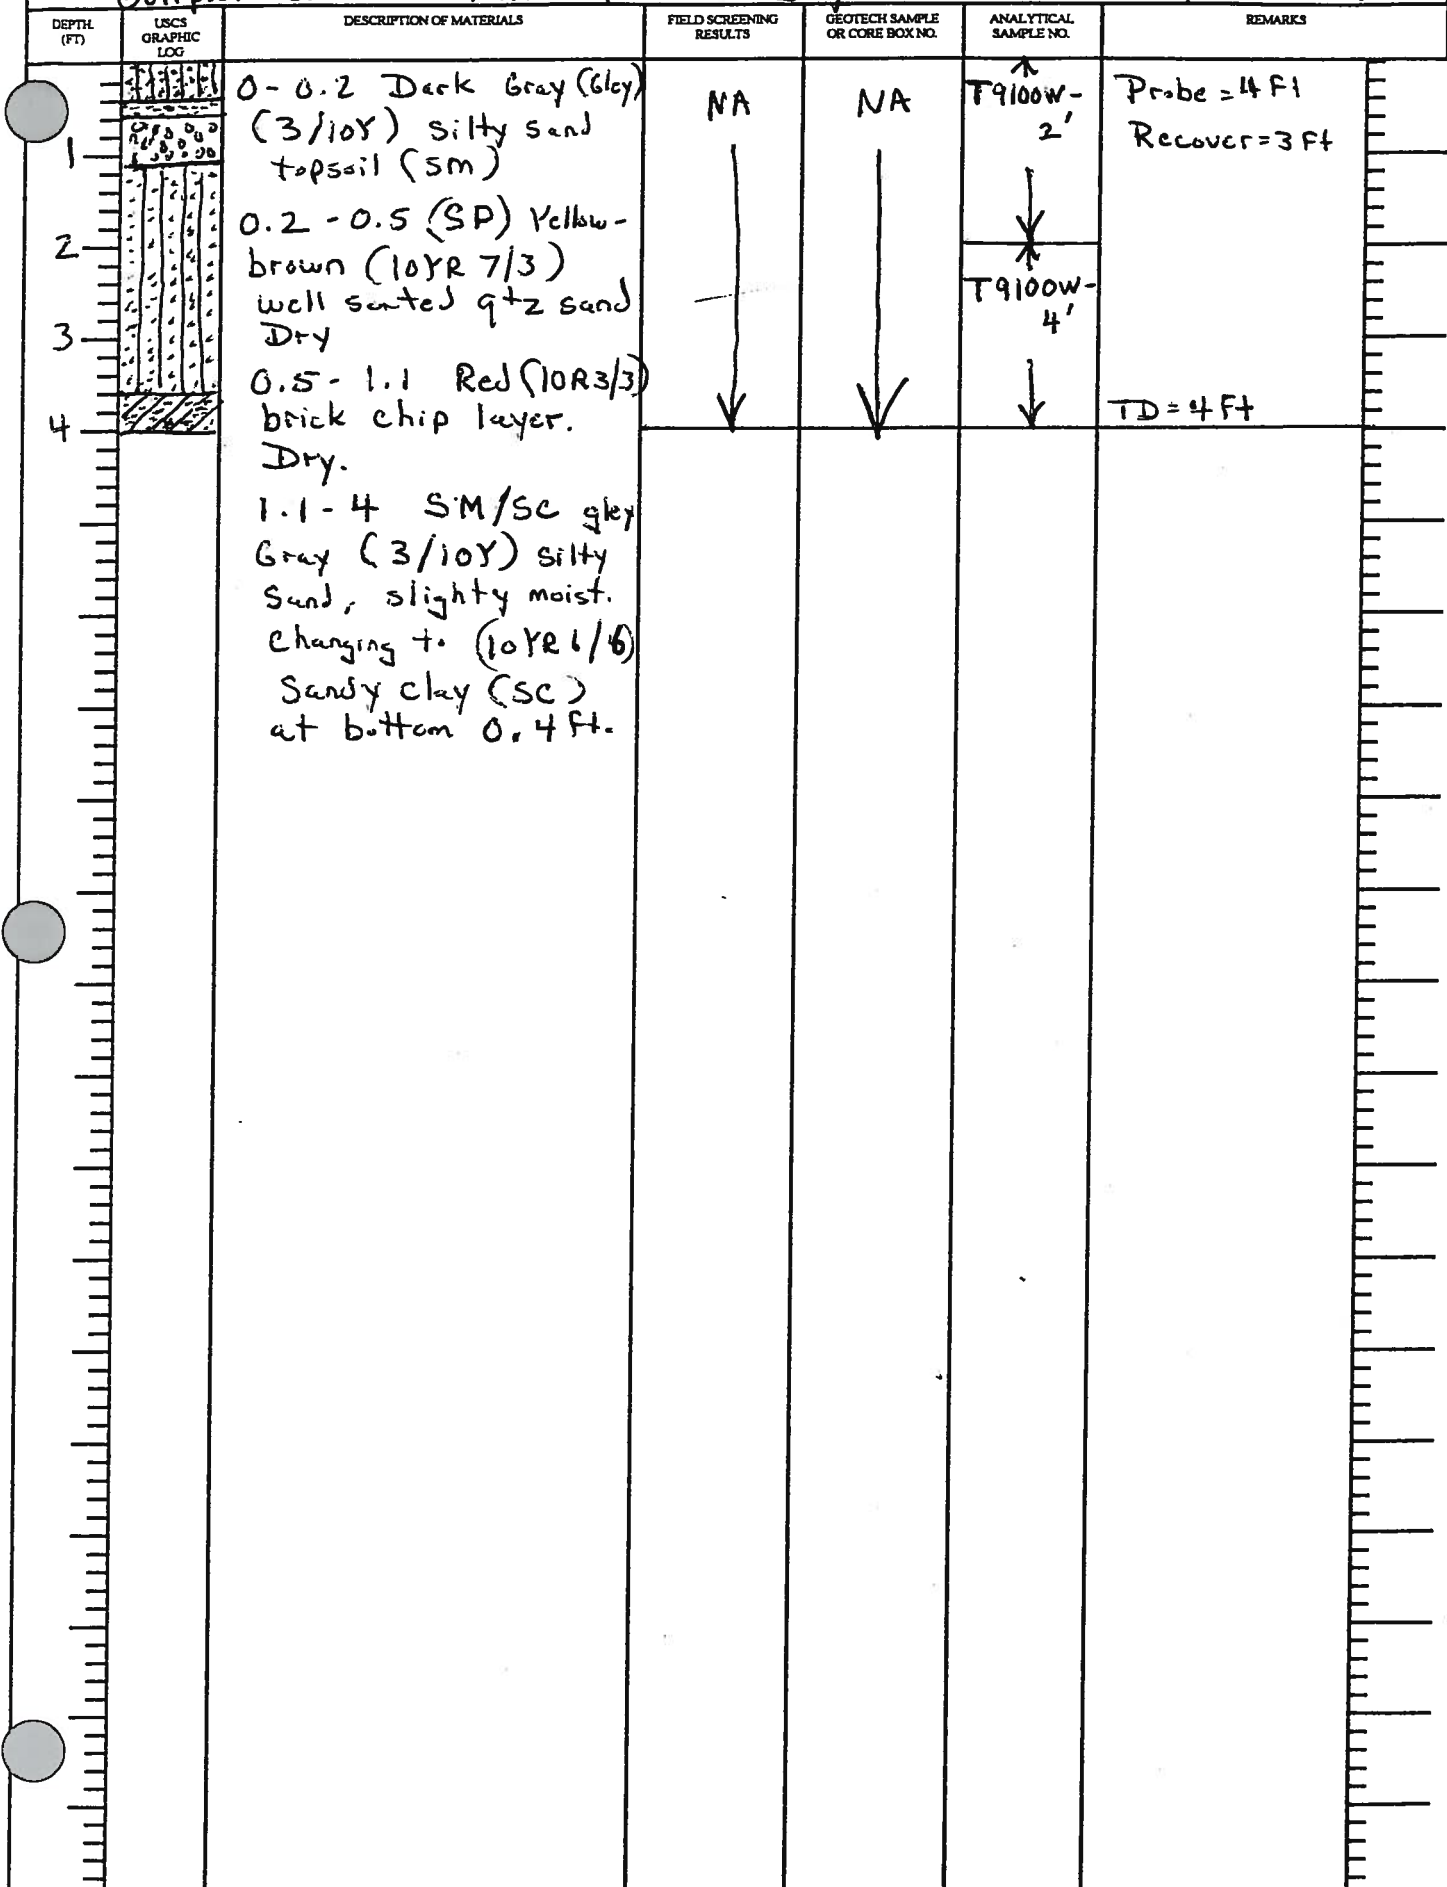 DEPTH (FT)
USCS GRAPHIC LOG
DESCRIPTION OF MATERIALS
FIELD SCREENING RESULTS
GEOTECH SAMPLE OR CORE BOX NO.
ANALYTICAL SAMPLE NO.
REMARKS
0-0.2 Dark Gray (Gley)
(3/10Y) silty sand
topsoil (SM)
0.2-0.5 (SP) Yellow-
brown (10YR 7/3)
well sorted qtz sand
Dry
0.5-1.1 Red (10R3/3)
brick chip layer.
Dry.
1.1-4 SM/SC gley
Gray (3/10Y) silty
Sand, slighty moist.
changing to (10YR 6/6)
Sandy clay (SC)
at bottom 0.4 ft.
NA
NA
T9100W-
2'
T9100W-
4'
Probe = 4 Ft
Recover = 3 Ft
TD = 4 Ft
1
2
3
4